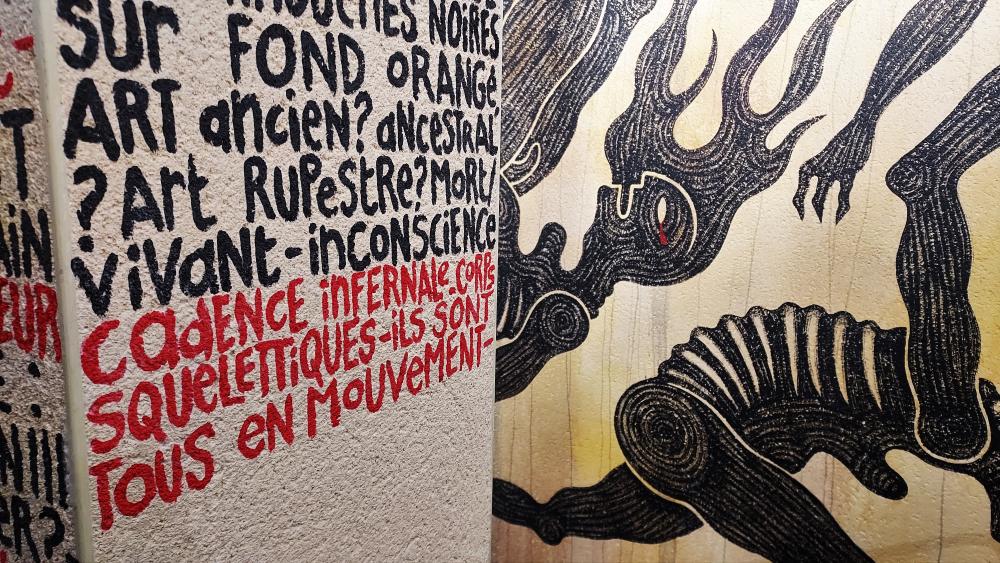 NOIRES
SUr FOND ORANGé
ART ancien? aNcESTRAL
? Art RUPeStRe? MoRt/
ViVaNt-inCONSCIENCE
CadENCE iNFERNALe. CORPS
SQUeLETTiQUES-iLS SONT
TOUS eN MOUVeMENT-